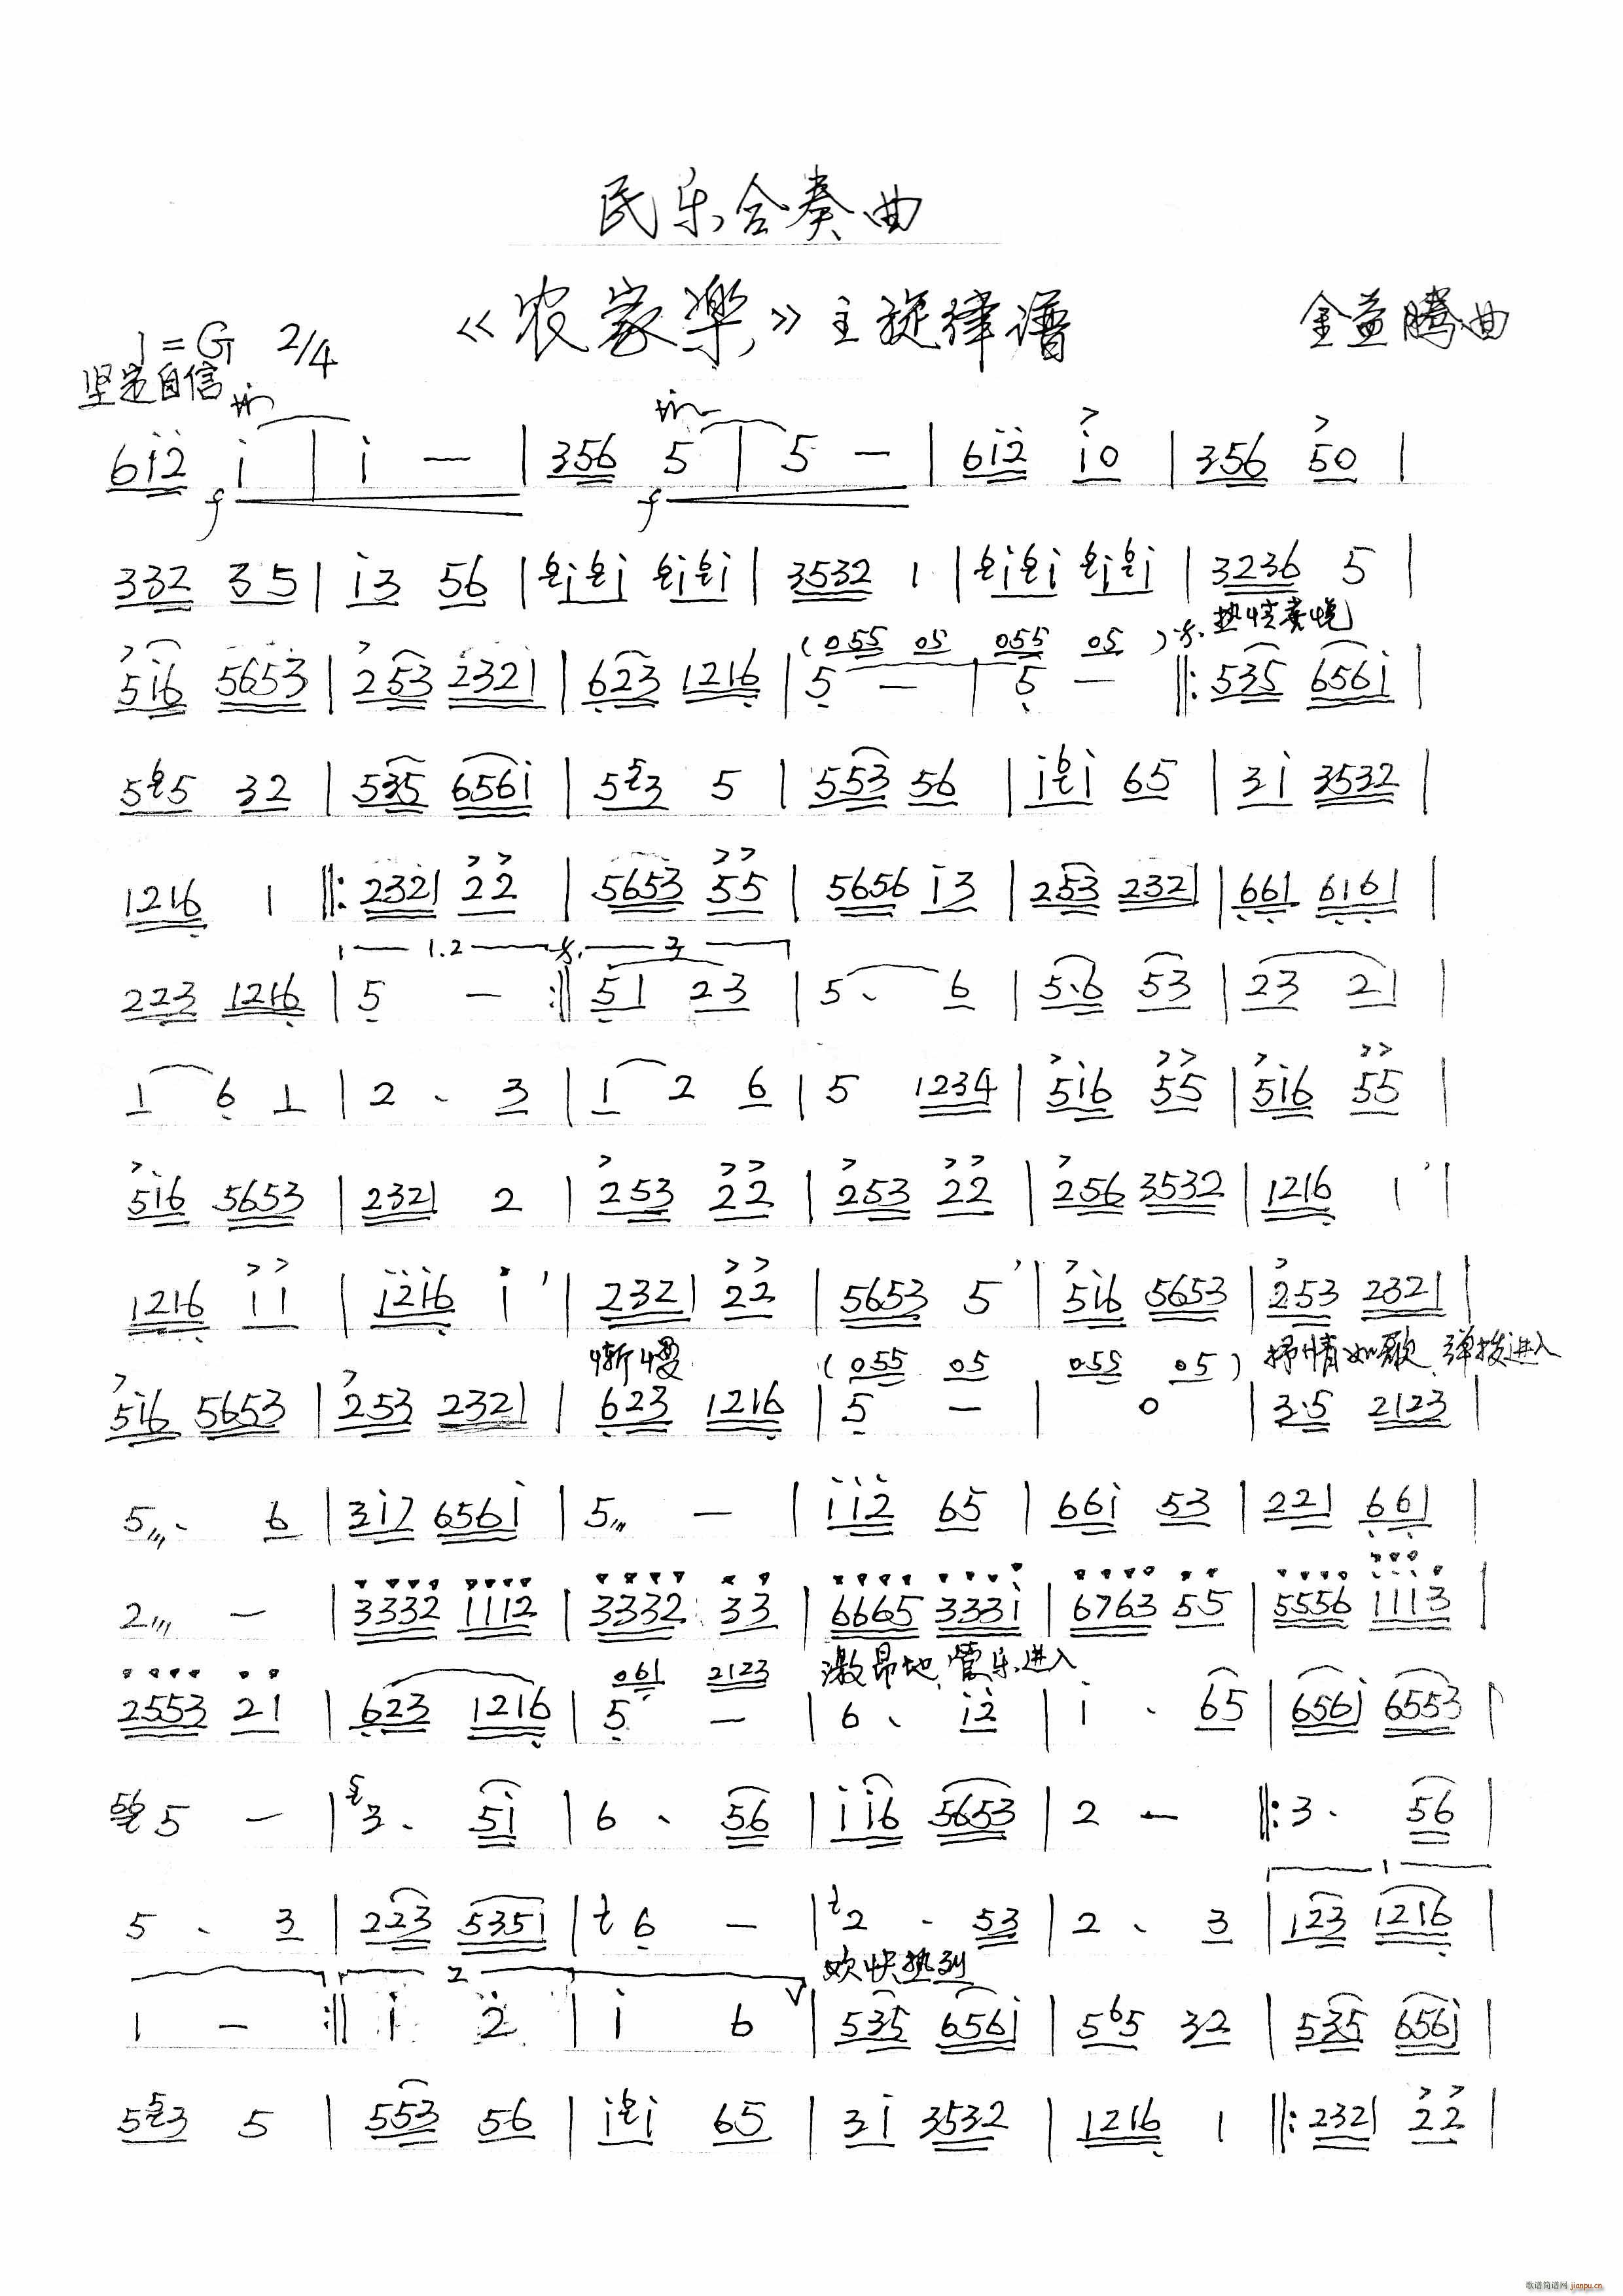 民乐合奏曲
《农家樂》主旋律谱
金益腾曲
1=G 2/4
坚定自信
612 f 1 | 1 — | 356 f 5 | 5 — | 612 10 | 356 50 |
332 35 | 13 56 | 6161 6161 | 3532 1 | 6161 6161 | 3236 5 |
(055 05 055 05) 热情
516 5653 | 253 2321 | 623 1216 | 5 — | 5 — ‖: 535 6561 |
565 32 | 535 6561 | 553 5 | 553 56 | 161 65 | 31 3532 |
1216 1 ‖: 2321 22 | 5653 55 | 5656 13 | 253 2321 | 661 6161 |
1.2 3
223 1216 | 5 — :‖ 51 23 | 5. 6 | 5.6 53 | 23 21 |
1 6 1 | 2. 3 | 1 2 6 | 5 1234 | 516 55 | 516 55 |
516 5653 | 2321 2 | 253 22 | 253 22 | 256 3532 | 1216 1 |
1216 11 | 1216 1 | 2321 22 | 5653 5 | 516 5653 | 253 2321 |
渐慢 (055 05 055 05) 抒情如歌 弹拨进入
516 5653 | 253 2321 | 623 1216 | 5 — | 0 | 3.5 2123 |
5. 6 | 317 6561 | 5 — | 112 65 | 661 53 | 221 661 |
2 — | 3332 1112 | 3332 33 | 6665 3331 | 6763 55 | 5556 1113 |
061 2123 激昂地、管乐进入
2553 21 | 623 1216 | 5 — | 6. 12 | 1. 65 | 6561 6553 |
56 5 — | 5 3. 51 | 6. 56 | 116 5653 | 2 — ‖: 3. 56 |
1
5. 3 | 223 5351 | 6 — | 2. 53 | 2. 3 | 123 1216 |
2 欢快热列
1 — :‖ 1 2 | 1 6 | 535 6561 | 565 32 | 535 6561 |
553 5 | 553 56 | 161 65 | 31 3532 | 1216 1 ‖: 2321 22 |
歌谱简谱网 jianpu.cn